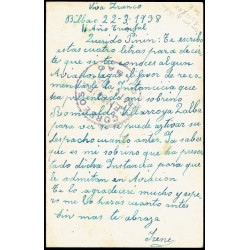 Viva Franco
Bilbao 22-3-1938
II Año Triunfal
Querido Pinin: Te escribo
estas cuatro letras para decir
te que si tu conoces algun
me hagas el favor de reco
mendarle la Instancia que
ha presentado mi sobrino
Villarroya Zalba
para ver si puede activar su
despacho cuanto antes. Ya sabes
que es mi sobrino que ha presen
tado dicha Instancia para que
le admitan en Aviacion
Te lo agradeceré mucho y espe
ro me lo harás cuanto antes
sin mas te abraza
Irene